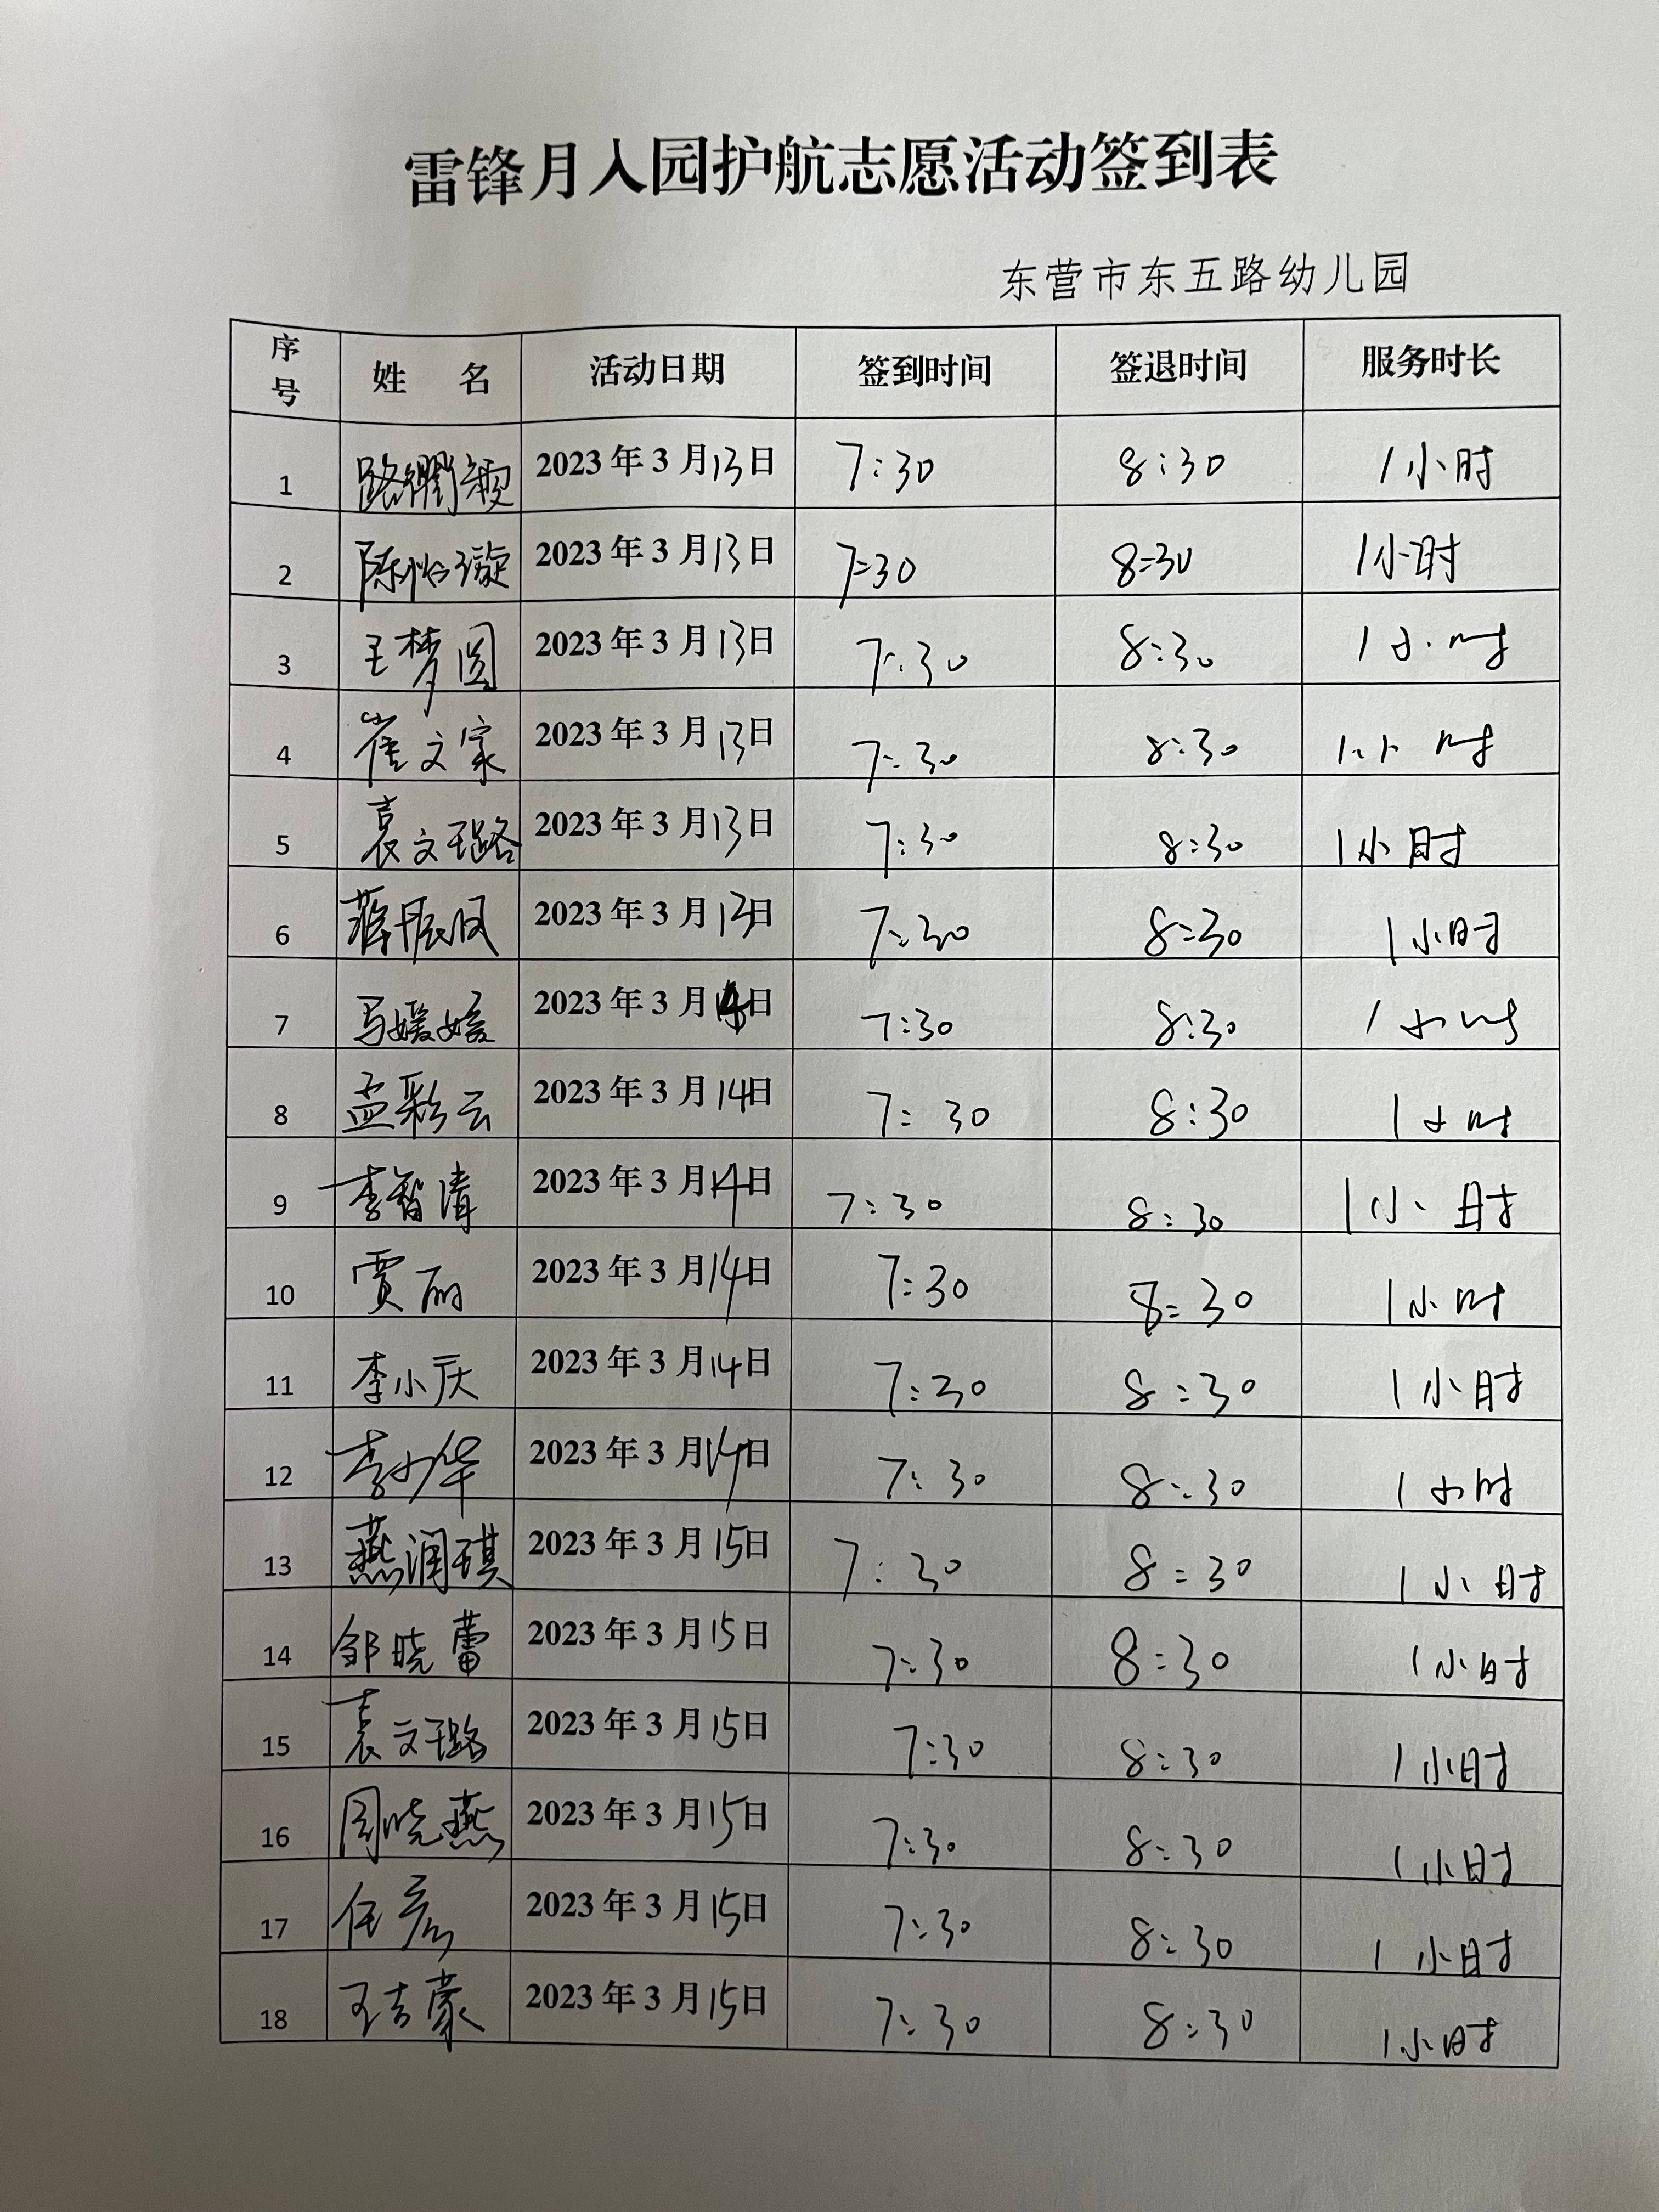 雷锋月入园护航志愿活动签到表
东营市东五路幼儿园
序号 姓 名 活动日期 签到时间 签退时间 服务时长
1 2023年3月13日 7:30 8:30 1小时
2 陈怡璇 2023年3月13日 7:30 8:30 1小时
3 王梦圆 2023年3月13日 7:30 8:30 1小时
4 崔文家 2023年3月13日 7:30 8:30 1小时
5 袁文璐 2023年3月13日 7:30 8:30 1小时
6 2023年3月13日 7:30 8:30 1小时
7 马媛媛 2023年3月14日 7:30 8:30 1小时
8 孟彩云 2023年3月14日 7:30 8:30 1小时
9 李智清 2023年3月14日 7:30 8:30 1小时
10 贾丽 2023年3月14日 7:30 8:30 1小时
11 李小庆 2023年3月14日 7:30 8:30 1小时
12 李小华 2023年3月14日 7:30 8:30 1小时
13 燕润琪 2023年3月15日 7:30 8:30 1小时
14 邹晓蕾 2023年3月15日 7:30 8:30 1小时
15 袁文璐 2023年3月15日 7:30 8:30 1小时
16 周晓燕 2023年3月15日 7:30 8:30 1小时
17 任彦 2023年3月15日 7:30 8:30 1小时
18 王吉蒙 2023年3月15日 7:30 8:30 1小时